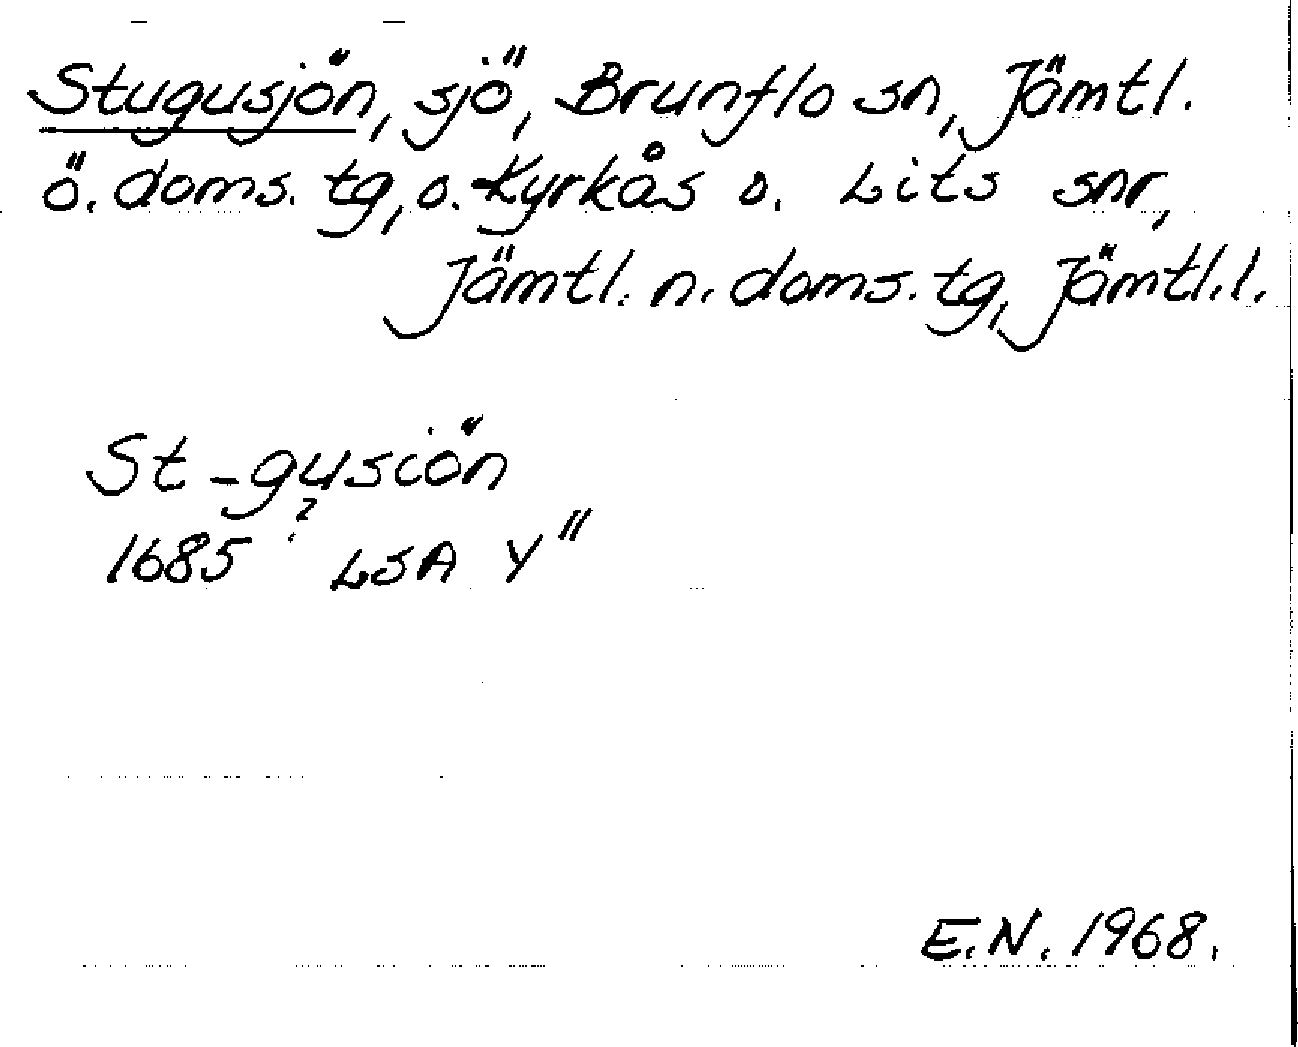 Stugusjön, sjö, Brunflo sn, Jämtl.
ö. doms. tg, o. Kyrkås o. Lits snr,
Jämtl. n. doms. tg, Jämtl. l.
St-gusiön
?
1685 LSA Y"
E.N. 1968.